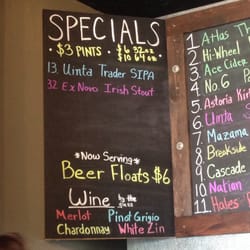 SPECIALS
$3 PINTS • $6 32oz
$10 64oz
13. Uinta Trader SIPA
32 Ex Novo Irish Stout
*Now Serving*
Beer Floats $6
Wine by the
Merlot Pinot Grigio
Chardonnay White Zin
1. Atlas
2. Hi-Wheel
3. Ace Cider
4. No. 6
5. Astoria
6. Uinta
7. Mazama
8. Breakside
9. Cascade
10. Nation
11. Hales